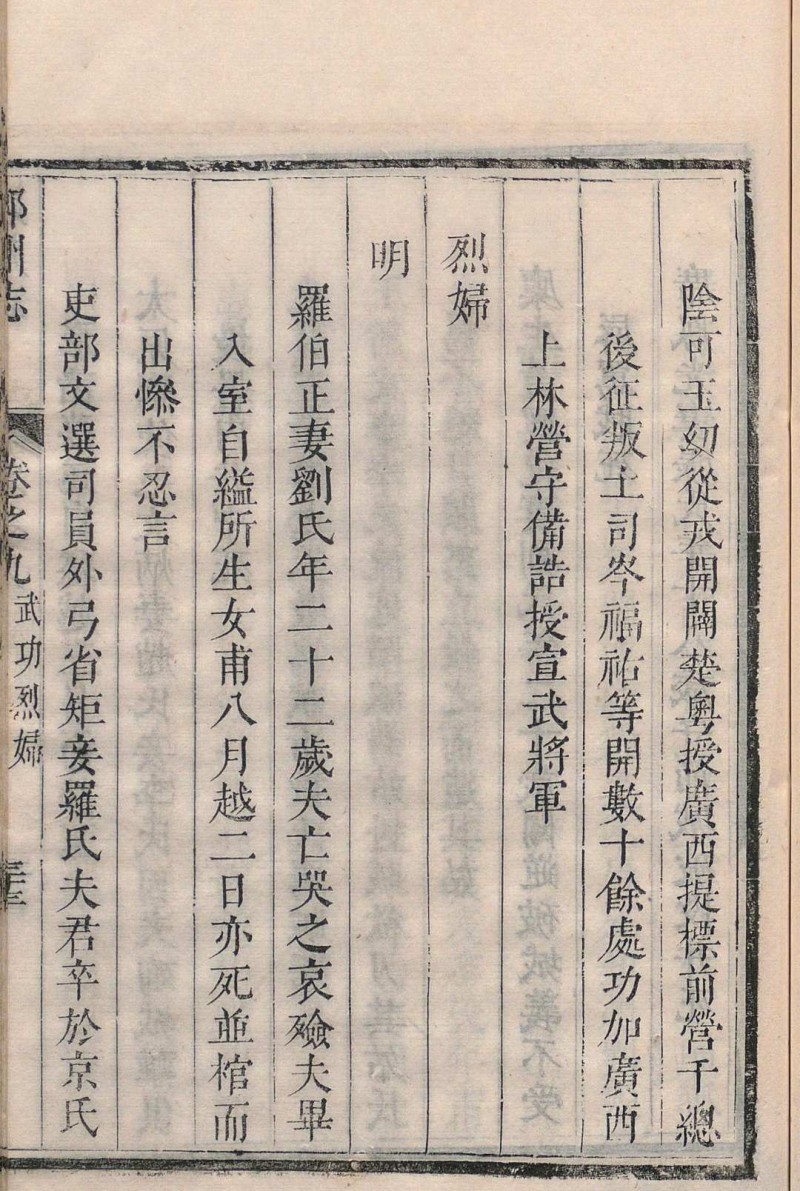 陰可玉幼從戎開闢楚粵授廣西提標前營千總
後征叛土司岑福祐等開數十餘處功加廣西
上林營守備誥授宣武將軍
烈婦
明
羅伯正妻劉氏年二十二歲夫亡哭之哀殮夫畢
入室自縊所生女甫八月越二日亦死並棺而
出慘不忍言
吏部文選司員外弓省矩妾羅氏夫君卒於京氏
州志 卷之九 武功烈婦